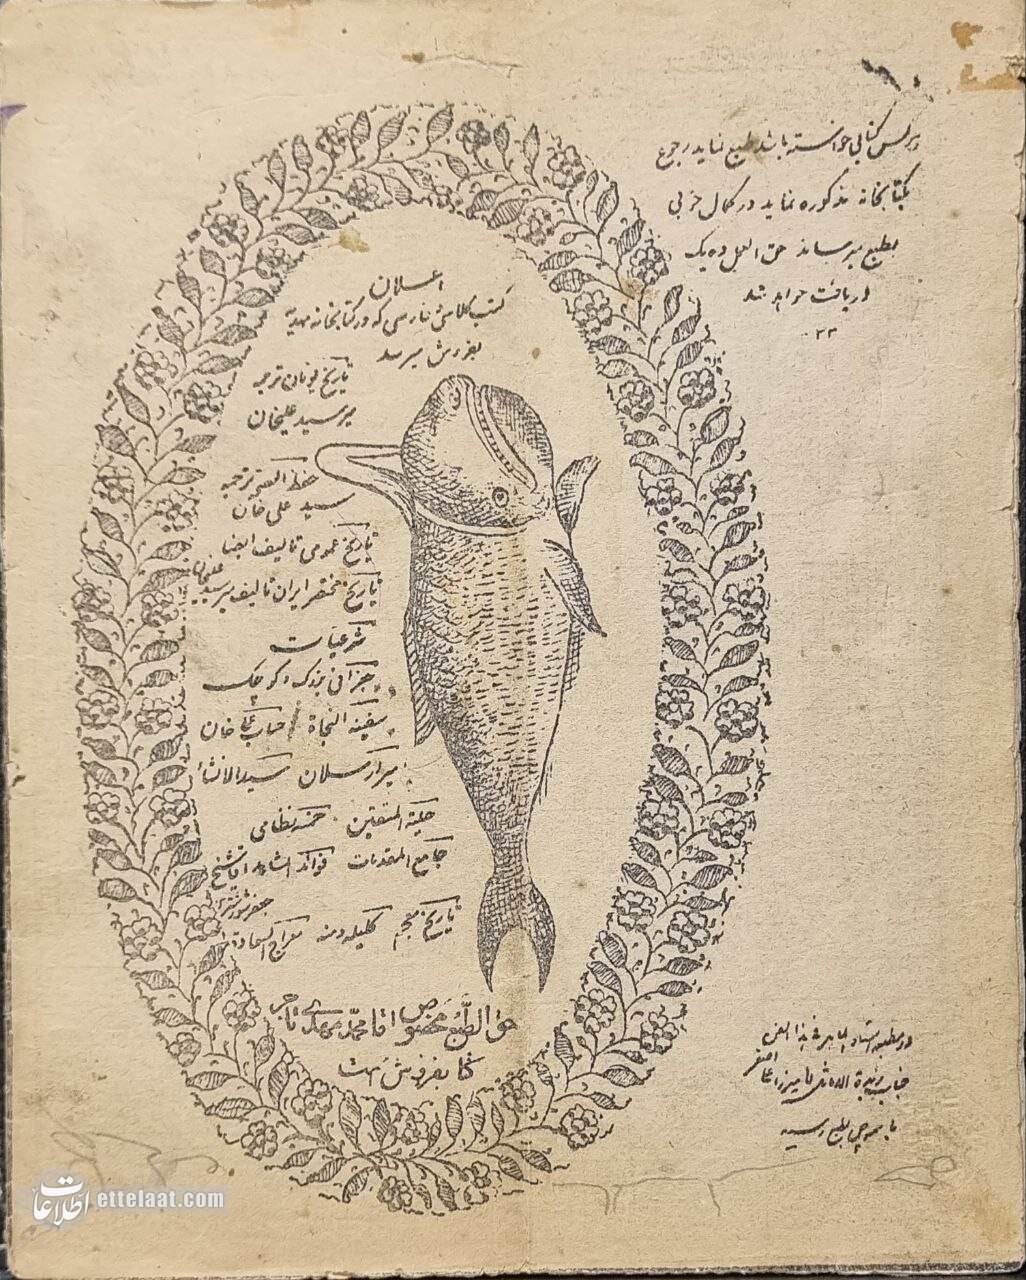 هر کس کتابی خواسته باشد طبع نماید رجوع
بکتابخانه مذکوره نماید در کمال خوبی
بطبع میرساند حق العمل ده یک
دریافت خواهد شد
۲۲
اعلان
کتب کلاسی فارسی که در کتابخانه مهدیه
بفروش میرسد
تاریخ یونان ترجمه
میر سید علیخان
حفظ الصحه ترجمه
سید علی خان
تاریخ عمومی تالیف ایضا
تاریخ مختصر ایران تالیف میر سید علیخان
شرعیات
جغرافی بزرگ و کوچک
سفینة النجاة حساب خان
میر ارسلان سید الانشاء
حلیة المتقین خمسه نظامی
جامع المقدمات فوائد المشاهد آقا شیخ
جعفر شوشتری
تاریخ معجم کلیله و دمنه معراج السعادة
حق الطبع مخصوص آقا محمد مهدی تاجر
کتابفروش است
در مطبعه استاد الماهر فی هذا الفن
جناب زبدة میرزا علی اصغر
باسمه چی بطبع رسید
اطلاعات ettelaat.com